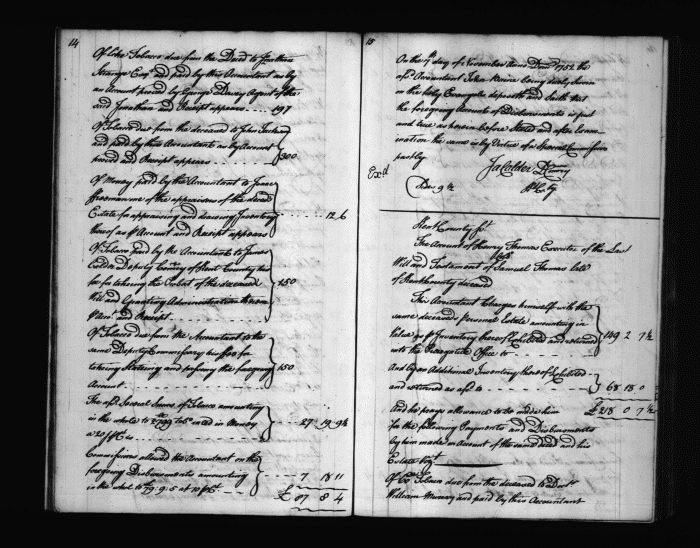 14
Of Like Tobacco due from the Deced to Jonathan
Strange Esqr. and paid by this Accountant as by
an Account proved by George Agent of the
said Jonathan and Receipt appears 197
Of Tobacco due from the deceased to John
and paid by this Accountant as by Account
proved and Receipt appears 300
Of Money paid by the Accountant to Isaac
Freeman one of the appraisers of the deced
Estate for appraising and drawing Inventory
thereof as Account and Receipt appears 12 6
Of Tobacco paid by the Accountant to James
Calder Deputy Comry of Kent County his
fee for taking the Probat of the deceased
Will and Granting Administration thereon
and Receipt 450
Of Tobacco due from the Accountant to the
same Deputy Commissary his fee for
taking Stating and passing the foregoing
Account 150
The afd. Several Sums of Tobacco amounting
in the whole to made in Money
27 19 9½
Commissions allowed the Accountant on the
foregoing Disbursements amounting
in the whole to 79:9:5 at 10 7 18 11
£ 87 8 4
15
On the 9 day of November Anno Dom 1752 the
afd. Accountant John being duly sworn
on the holy Evangells deposeth and Saith that
the foregoing Account of Disbursements is just
and true as herein before Stated and after Exam-
ination the same is by Virtue of a Special Commission
past by
Ja Calder D Comry
Ex.d
Kent County
Kent County sct.
The Account of Henry Thomas Executor of the Last
Will and Testament of Samuel Thomas late
of Kent County deceased
This Accountant Charges himself with the
same deceaseds personal Estate amounting in
Value Inventory thereof Exhibited and returned
into the Prerogative Office to 149 2 7½
And by an Additional Inventory thereof Exhibited
and returned as afd. to 68 18 0
£ 218 0 7½
And he prays allowance to be made him
for the following Payments and Disbursements
by him made on Account of the same deced and his
Estate
Of Tobacco due from the deceased to Doctr
William Murray and paid by this Accountant